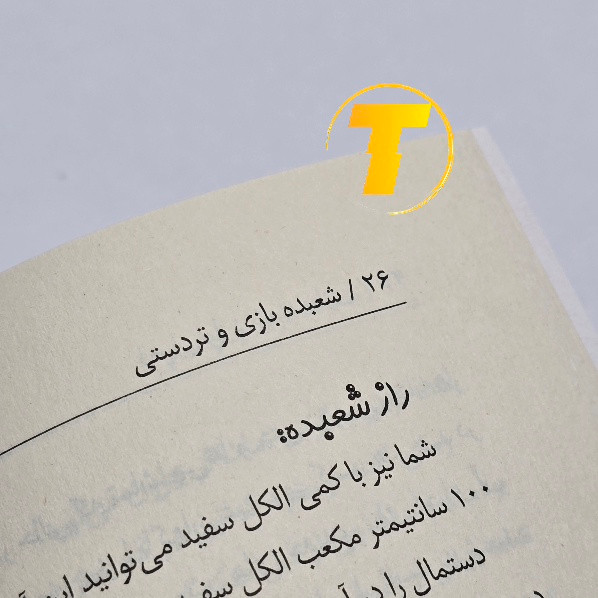 T
۲۶ / شعبده بازی و تردستی
راز شعبده:
شما نیز با کمی الکل سفید می‌توانید این
۱۰۰ سانتیمتر مکعب الکل
دستمال را در